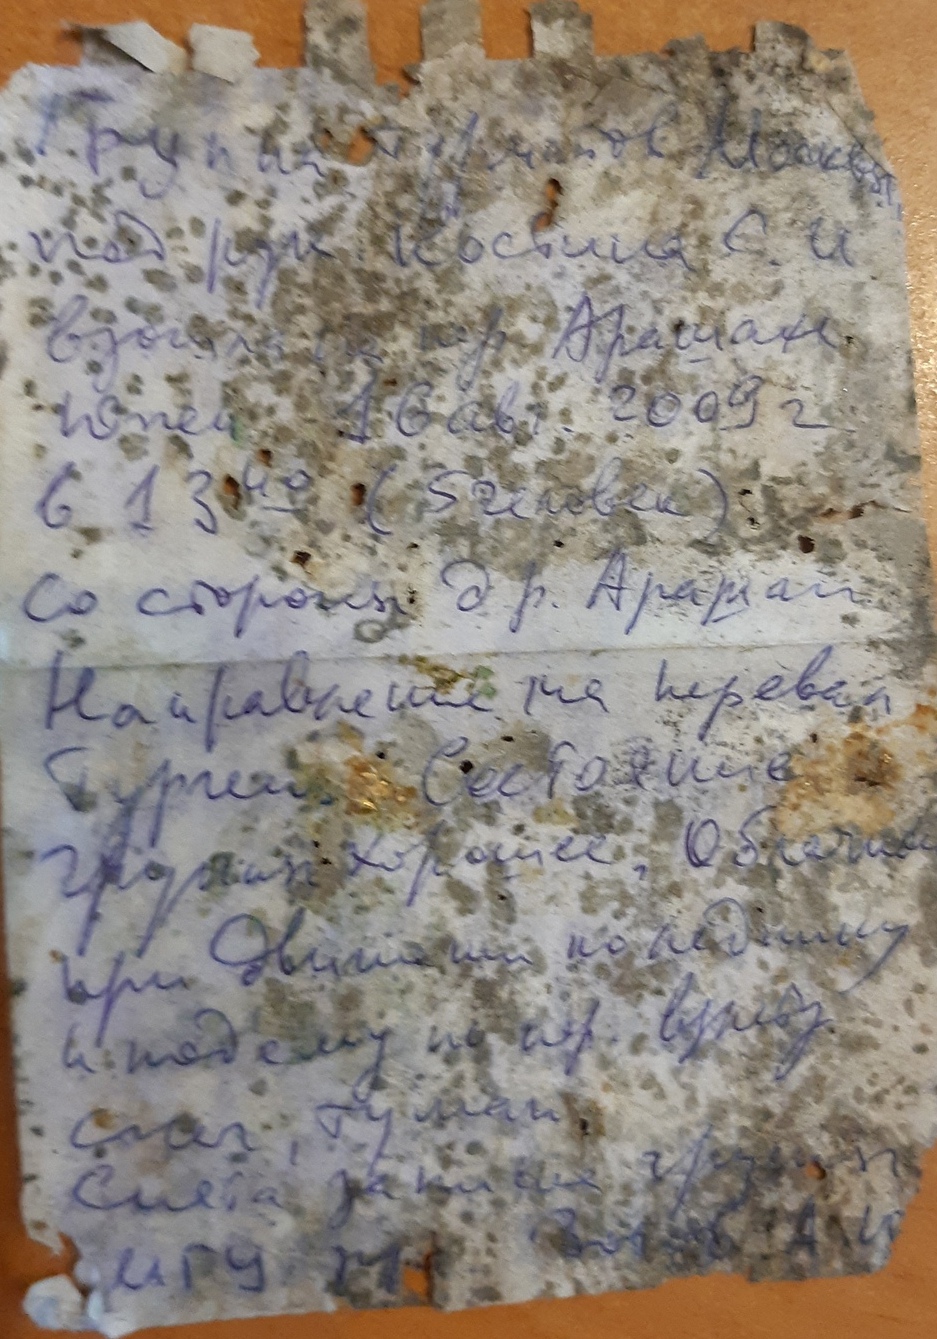 Группа туристов Москвы
под рук. Костина С. И
взошла на пер. Арашан
южн 16 авг. 2009 г
в 13 40 (5 человек)
со стороны д р. Арашан
Направление на перевал
Тургень. Состояние
группы хорошее, Облачн
при движении по леднику
и подему по пер.
снег, туман
Снята записка группы
МГУ А И